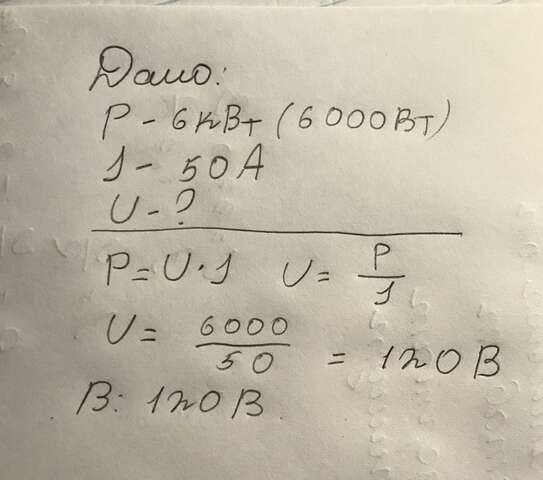 Дано:
P - 6кВт (6000Вт)
I - 50А
U - ?
P = U · I U = P/I
U = 6000/50 = 120В
В: 120В